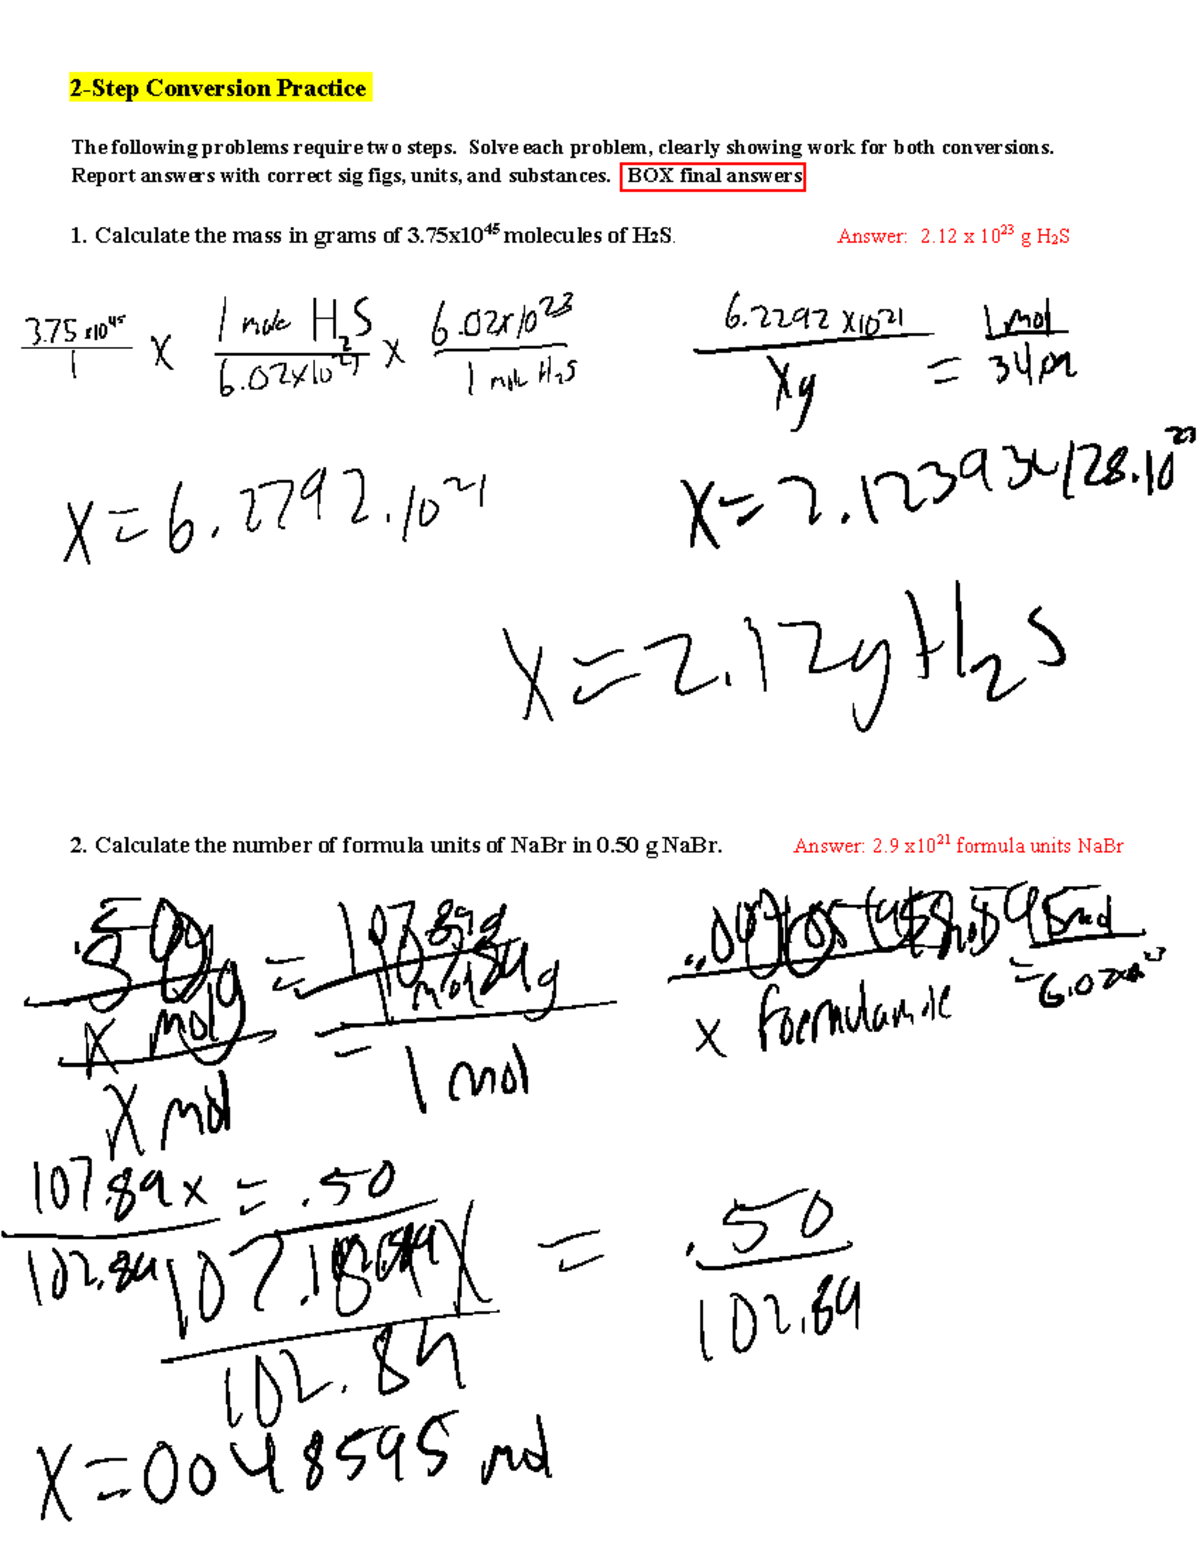 2-Step Conversion Practice
The following problems require two steps. Solve each problem, clearly showing work for both conversions.
Report answers with correct sig figs, units, and substances. BOX final answers
1. Calculate the mass in grams of 3.75x10⁴⁵ molecules of H₂S. Answer: 2.12 x 10²³ g H₂S
3.75 x10⁴⁵ / 1 x 1 mole H₂S / 6.02x10²³ x 6.02x10²³ / 1 mole H₂S
6.2292 x10²¹ / xg = 1 mol / 34
x=6.2292.10²¹
x=2.12393
x=2.12g H₂S
2. Calculate the number of formula units of NaBr in 0.50 g NaBr. Answer: 2.9 x10²¹ formula units NaBr
x mol
x mol = 1 mol
x formula
107.89x = .50
102.89
x = .50 / 102.89
102.89
x=0048595 mol